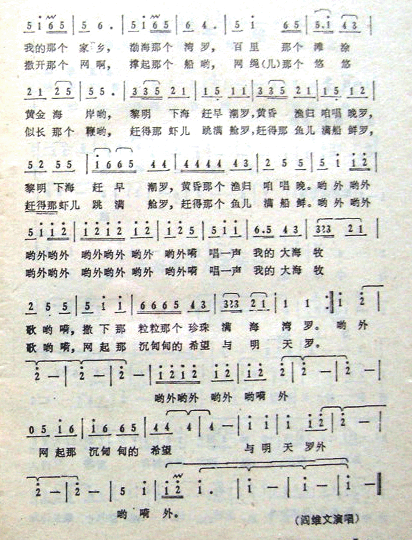 5 i 6 5 | 5 6 . | 5 i 6 5 | 6 4 . | 5 i | 6 5 5 | 5 . i 4 3 |
我的那个 家乡, 渤海那个 湾罗, 百里 那个 滩涂
撒开那个 网啊, 撑起那个 船哟, 网绳(儿)那个 悠悠
2 1 2 5 | 5 5 . | 3 3 5 2 1 | 1 5 1 5 | 3 3 5 2 1 | 1 2 5 1 5 |
黄金 海 岸哟, 黎明 下海 赶早 潮罗,黄昏 渔归 咱唱 晚罗,
似长 那个 鞭哟, 赶得那 虾儿 跳满 舱罗,赶得那 鱼儿 满船 鲜罗,
5 2 5 5 | i 6 6 5 | 4 4 | 4 4 4 4 4 3 | 2 5 5 | 5 i i 2 |
黎明 下海 赶 早 潮罗,黄昏那个 渔归 咱唱 晚。哟外 哟外
赶得那虾儿 跳 满 舱罗,赶得那个 鱼儿 满船 鲜。哟外 哟外
5 i i 2 | i 2 i 2 | i 2 i 2 | i 2 5 | 5 i i | 6 . 5 4 3 | 3 2 3 2 1 |
哟外哟外 哟外哟外 哟外哟外 哟外嗬 唱一声 我的 大海 牧
哟外哟外 哟外哟外 哟外哟外 哟外嗬 唱一声 我的 大海 牧
2 5 5 | 5 i i | 6 6 6 5 4 3 | 3 2 3 2 1 | 1 1 . :| i 2 |
歌哟嗬, 撒下那 粒粒那个 珍珠 满 海 湾罗。 哟 外
歌哟嗬, 网起那 沉甸甸的 希望 与 明 天罗。
2 — | 2 — | 2 — | i 2 i 2 | i 2 i 2 | i 2 2 | 2 — | 2 — |
哟外哟外 哟外哟外 哟外嗬 外
0 5 i 6 | i 6 i 6 | 5 5 | 4 4 | 4 — | i i | i i 2 | 2 — |
网起那 沉甸甸的 希望 与明 天罗外
2 — | 2 — | 5 i | i 2 i . | i — | i — | i — ‖
哟 嗬 外。
(阎维文演唱)